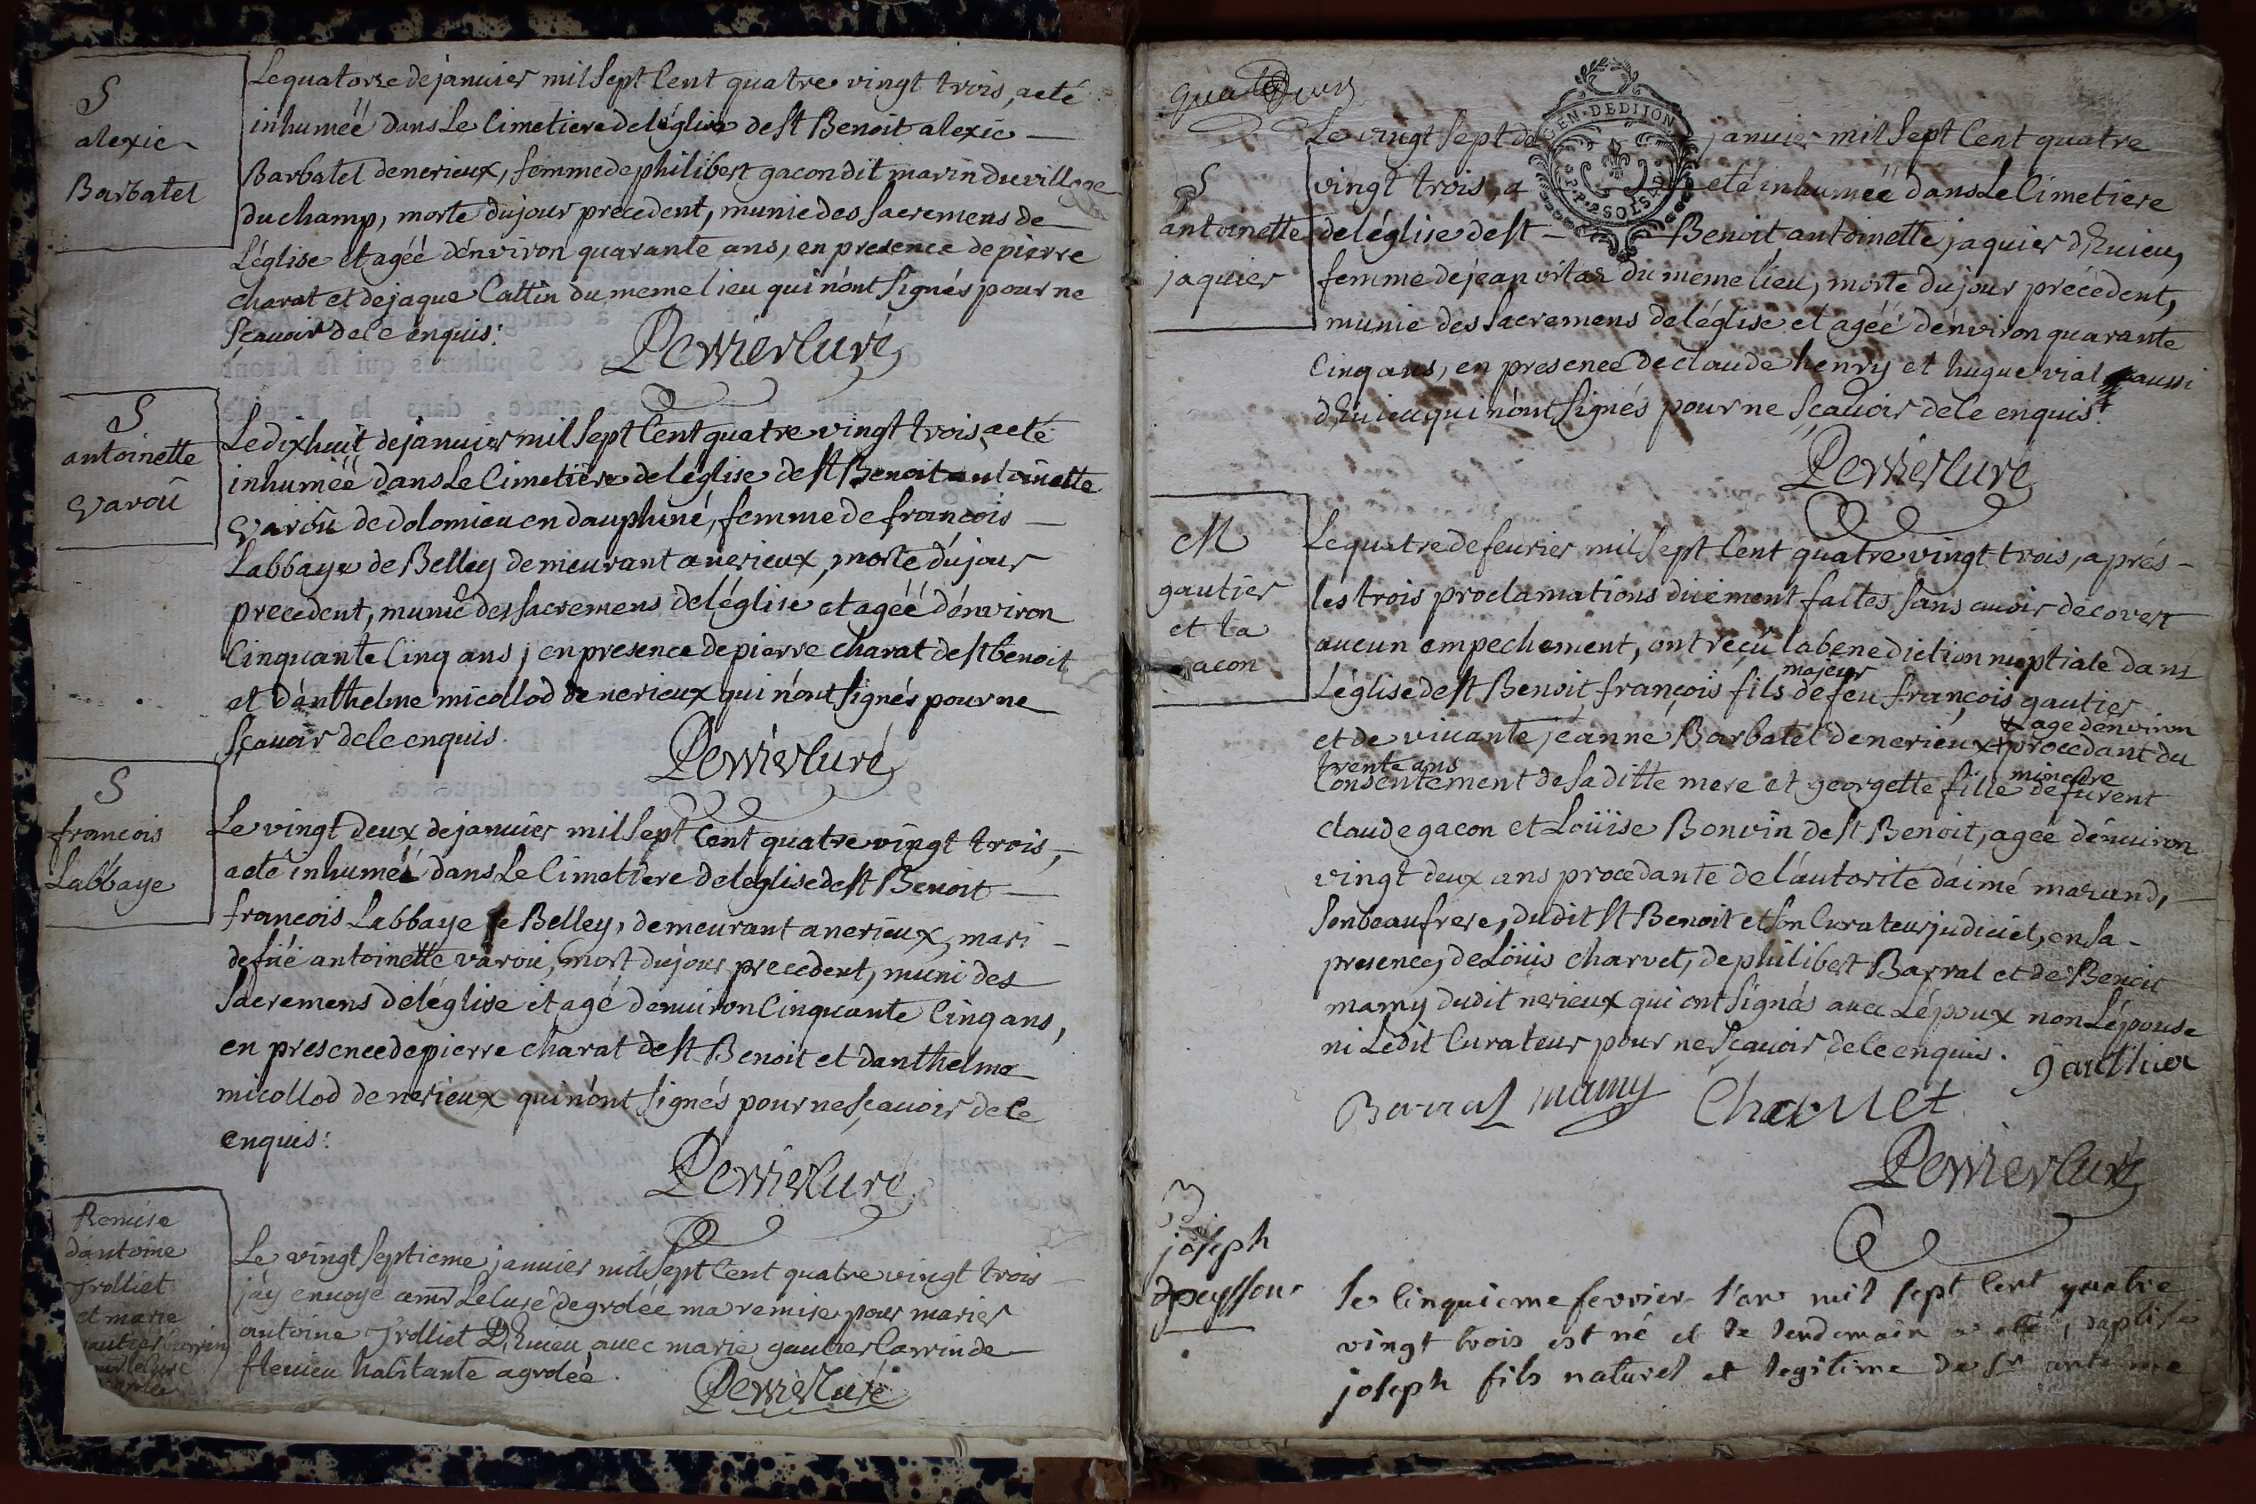 S
alexie
Barbatel
Le quatorze de janvier mil sept Cent quatre vingt trois, a eté
inhumeé dans Le Cimetiere de léglise de st Benoit alexie
Barbatel de nerieux, femme de philibert gacon dit marin du village
du champ, morte du jour precedent, munie des sacremens de
Léglise et ageé dénviron quarante ans, en presence de pierre
charat et de jaque Cattin du meme lieu qui nónt signés pour ne
sçavoir de ce enquis.
Perrier Curé
S
antoinette
varoû
Le dix huit de janvier mil sept Cent quatre vingt trois, a eté
inhumeé dans Le Cimetiere de léglise de st Benoit antoinette
varoû de dolomieu en dauphiné, femme de francois
Labbaye de Belley demeurant a nerieux, morte du jour
precedent, munie des sacremens de léglise et ageé dénviron
Cinquante Cinq ans, en presence de pierre charat de st benoit
et dánthelme micollod de nerieux qui nónt signés pour ne
sçavoir de ce enquis.
Perrier Curé
S
francois
Labbaye
Le vingt deux de janvier mil sept Cent quatre vingt trois,
a eté inhumé dans Le Cimetiere de leglise de st Benoit
francois Labbaye de Belley, demeurant a nerieux, mari
de füe antoinette varoû, mort du jour precedent, muni des
sacremens de léglise et agé denviron Cinquante Cinq ans,
en presence de pierre charat de st Benoit et danthelme
micollod de nerieux qui nónt signés pour ne sçavoir de ce
enquis.
Perrier Curé
Remise
dántoine
Trolliet
et marie
Le vingt septieme janvier mil sept Cent quatre vingt trois
jáy envoyé a mr Le Curé de grolée ma remise pour marier
antoine Trolliet D'Evieu avec marie gautier Carrin de
flevieu habitante a grolée.
Perrier Curé
quatre
Le vingt sept de janvier mil sept Cent quatre
GEN. DE DIJON
P.P. 2 SOLS
S
antoinette
jaquier
vingt trois, a eté inhumeé dans Le Cimetiere
de léglise de st Benoit antoinette jaquier d'Evieu,
femme de jean vitaz du meme lieu, morte du jour précédent,
munie des sacremens de léglise et ageé dénviron quarante
Cinq ans, en presence de claude henry et hugue vial aussi
d'Evieu qui nónt signés pour ne sçavoir de ce enquis.
Perrier Curé
M
gautier
et la
gacon
Le quatre de fevrier mil sept Cent quatre vingt trois, aprés
les trois proclamations düement faites sans avoir decovert
aucun empechement, ont reçu la benediction nuptiale dans
majeur
Léglise de st Benoit, françois fils de feu françois gautier
age denviron
et de vivante jeanne Barbatel de nerieux procedant du
trente ans
mineure
Consentement de sa ditte mere et georgette fille de furent
claude gacon et Loüise Bonvin de st Benoit, agee dénviron
vingt deux ans procedante de láutorité dáimé marand,
son beaufrere, dudit st Benoit et son Curateur judiciel, en sa
presence, de Loüis charvet, de philibert Barral et de Benoit
mamy dudit nerieux qui ont signés avec Lépoux non Lépouse
ni Ledit Curateur pour ne sçavoir de ce enquis.
gauthier
Barral mamy Charvet
Perrier Curé
joseph
dpeysson
Le Cinquieme fevrier l'an mil sept Cent quatre
vingt trois est né et le lendemain a eté baptisé
joseph fils naturel et legitime de Sr antoine